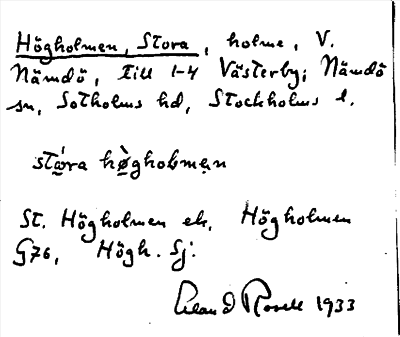 Högholmen, Stora, holme, V.
Nämdö, till 1-4 Västerby; Nämdö
sn, Sotholms hd, Stockholms l.
stó̱ra hö̱̀gholmen
St. Högholmen ek, Högholmen
G76, Högh. Sj.
Rosell 1933